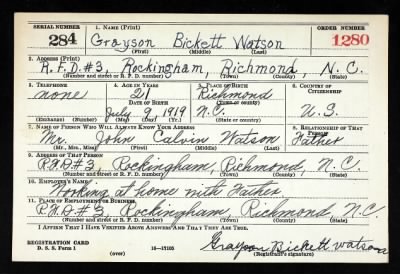 SERIAL NUMBER 1. NAME (Print) ORDER NUMBER
284 Grayson Bickett Watson 1280
(First) (Middle) (Last)
2. ADDRESS (Print)
R.F.D.#3, Rockingham, Richmond, N.C.
(Number and street or R. F. D. number) (Town) (County) (State)
3. TELEPHONE 4. AGE IN YEARS 5. PLACE OF BIRTH 6. COUNTRY OF CITIZENSHIP
none 21 Richmond
DATE OF BIRTH (Town or county)
July 9 1919 N.C. U.S.
(Exchange) (Number) (Mo.) (Day) (Yr.) (State or country)
7. NAME OF PERSON WHO WILL ALWAYS KNOW YOUR ADDRESS 8. RELATIONSHIP OF THAT PERSON
Mr. John Calvin Watson Father
(Mr., Mrs., Miss) (First) (Middle) (Last)
9. ADDRESS OF THAT PERSON
R.F.D#3, Rockingham, Richmond, N.C.
(Number and street or R. F. D. number) (Town) (County) (State)
10. EMPLOYER'S NAME
Working at home with Father
11. PLACE OF EMPLOYMENT OR BUSINESS
R.F.D #3 Rockingham Richmond N.C.
(Number and street or R. F. D. number) (Town) (County) (State)
I AFFIRM THAT I HAVE VERIFIED ABOVE ANSWERS AND THAT THEY ARE TRUE.
REGISTRATION CARD
D. S. S. Form 1 (over) 16—17105 Grayson Bickett Watson
(Registrant's signature)